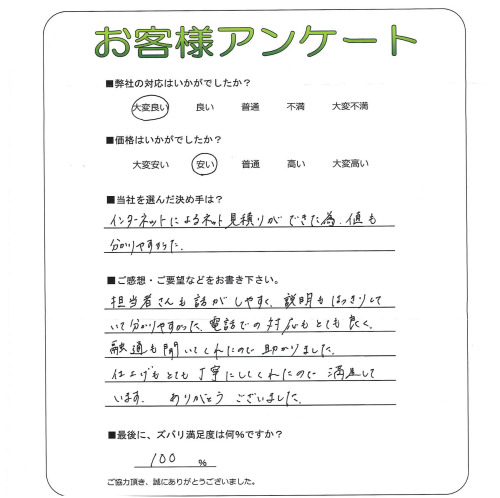 お客様アンケート
■弊社の対応はいかがでしたか？
大変良い 良い 普通 不満 大変不満
■価格はいかがでしたか？
大変安い 安い 普通 高い 大変高い
■当社を選んだ決め手は？
インターネットによるネット見積りができた為、値も
分かりやすかった。
■ご感想・ご要望などをお書き下さい。
担当者さんも話がしやすく、説明もはっきりして
いて分かりやすかった。電話での対応もとても良く、
融通も聞いてくれたので助かりました。
仕上げもとても丁寧にしてくれたので満足して
います。 ありがとうございました。
■最後に、ズバリ満足度は何%ですか？
100 %
ご協力頂き、誠にありがとうございました。